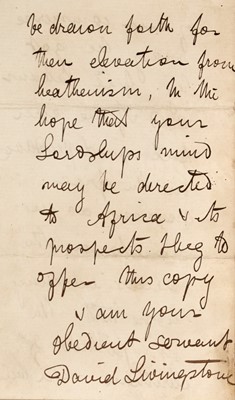 be drawn forth for
their elevation from
heathenism, In the
hope that your
Lordships mind
may be directed
to Africa & its
prospects I beg to
offer this copy
& am your
obedient servant
David Livingstone